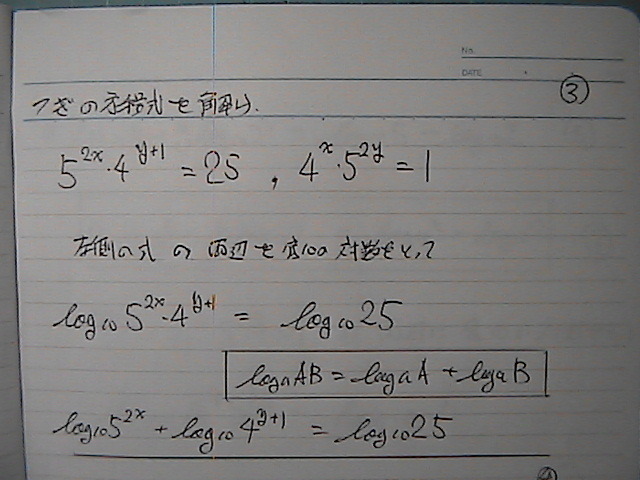 No.
DATE
③
つぎの方程式を解け.
5^{2x}・4^{y+1} = 25 , 4^x・5^{2y} = 1
左側の式の両辺を底10の対数をとって
log₁₀5^{2x}・4^{y+1} = log₁₀25
logₐAB = logₐA + logₐB
log₁₀5^{2x} + log₁₀4^{y+1} = log₁₀25